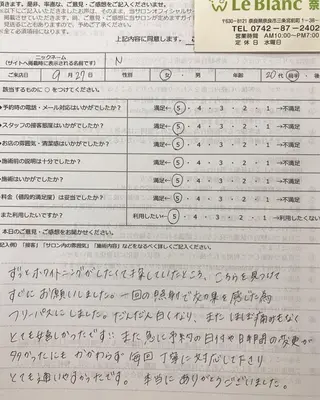 頂きます。是非、率直な、ご意見・ご感想をご記入ください。
※以下にご記入頂きましたお声は、当サロンオフィシャルサ
上記内容に同意します。
Le Blanc 奈
〒630-8121 奈良県奈良市三条宮前町
TEL 0742-87-2402
営業時間 AM10:00-PM7:00
定休日 水曜日
ニックネーム
(サイトへ掲載時に表示される名前です)
N
ご来店日 9月27日 性別 女・男 年齢 20代
該当するものに○をつけてください。
・予約時の電話・メール対応はいかがでしたか？ 満足←5・4・3・2・1→不満足
・スタッフの接客態度はいかがでしたか？ 満足←5・4・3・2・1→不満足
・お店の雰囲気・清潔感はいかがでしたか？ 満足←5・4・3・2・1→不満足
・施術前の説明は十分でしたか？ 満足←5・4・3・2・1→不満足
・施術はいかがでしたか？ 満足←5・4・3・2・1→不満足
・料金（価段的満足度）は妥当でしたか？ 満足←5・4・3・2・1→不満足
・また利用したいですか？ 利用したい←5・4・3・2・1→利用したくない
■本日のご意見・ご感想をお聞かせください。
記入例）「接客」「サロン内の雰囲気」「施術内容」などをなるべく詳しくご記入ください。
ずっとホワイトニングがしたくて探していたところ、こちらを見つけて
すぐにお願いしました。一回の照射で効果を感じた為
フリーパスにしました。だんだん白くなり、またほぼ痛みもなく
とても嬉しかったです!! また急に予約の日付や日時間の変更が
多かったにもかかわらず毎回丁寧に対応して下さり
とても通いやすかったです。本当にありがとうございました。